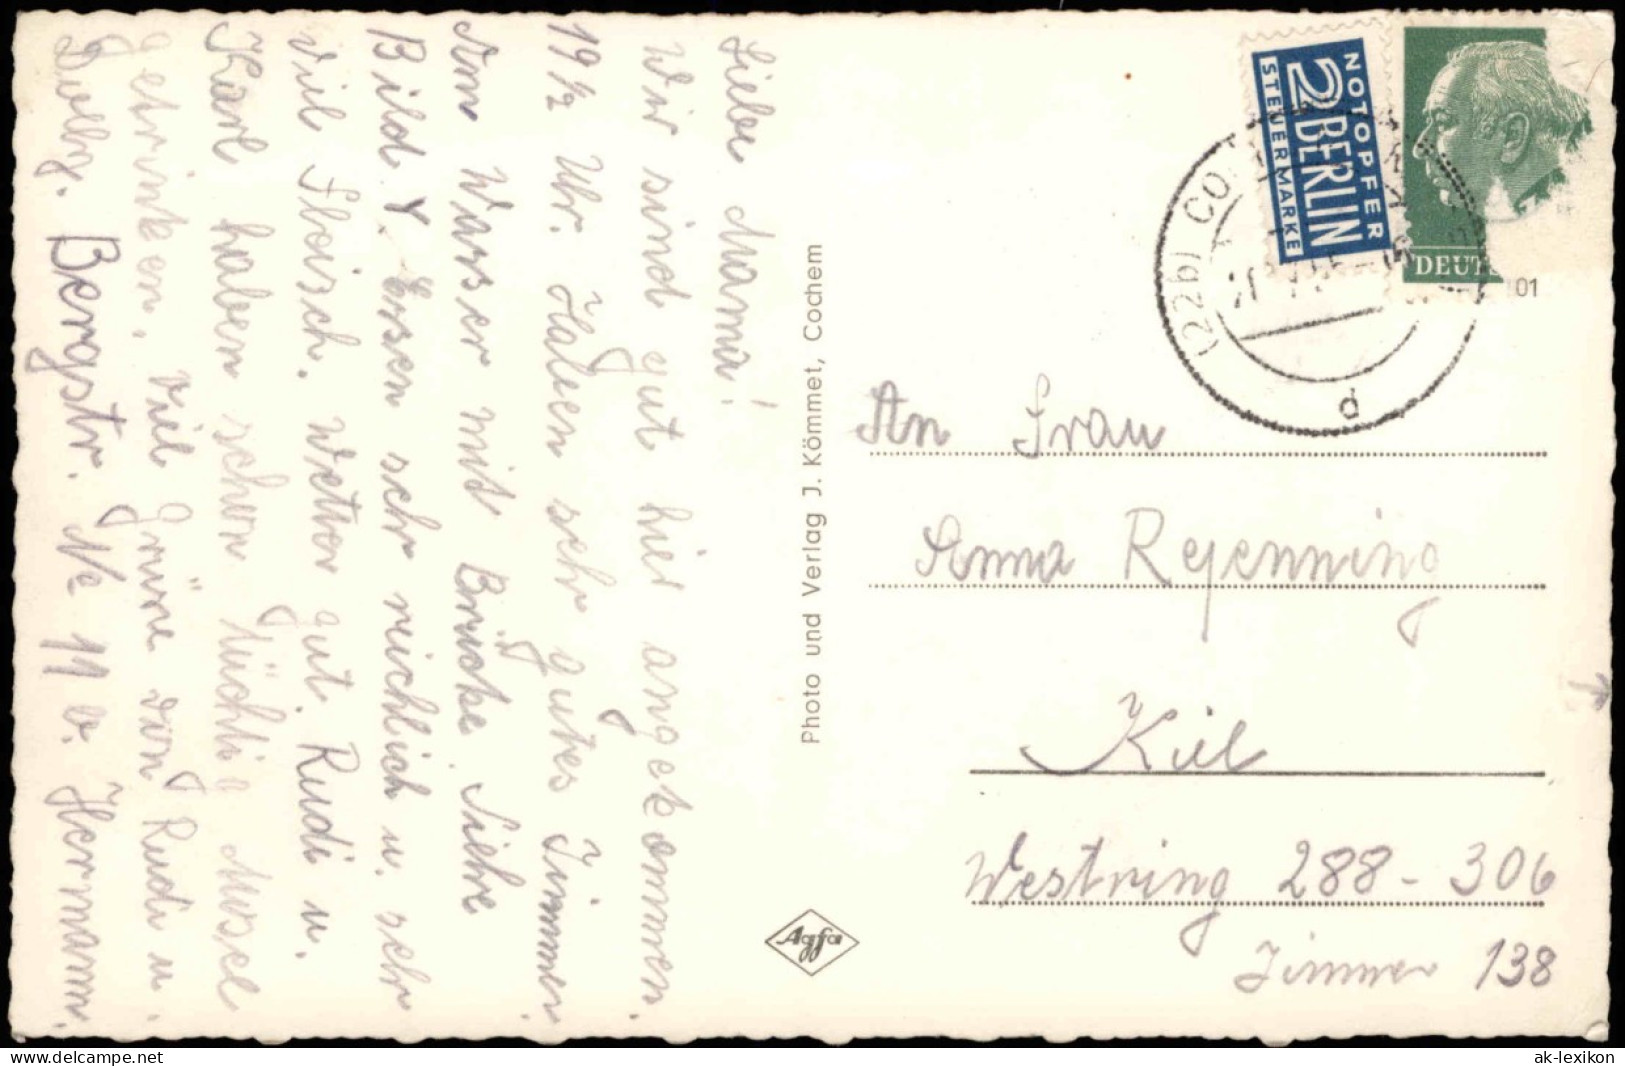 Liebe Mama!
Wir sind gut hier angekommen.
19½ Uhr. Haben sehr gutes Zimmer
Am Wasser mit Brücke. Siehe
Bild X Essen sehr reichlich u. sehr
viel Fleisch. Wetter gut. Rudi u.
Karl haben schon tüchtig Mosel
getrinken, viel Grüße von Rudi u.
Bergstr. 11 b. Hermann.
Photo und Verlag J. Kömmet, Cochem
Agfa
NOTOPFER
2 BERLIN
STEUERMARKE
DEUT
01
(22b) CO
d
An Frau
Anna Regenning
Kiel
Westring 288-306
Zimmer 138
hakpost.com
ak-lexikon